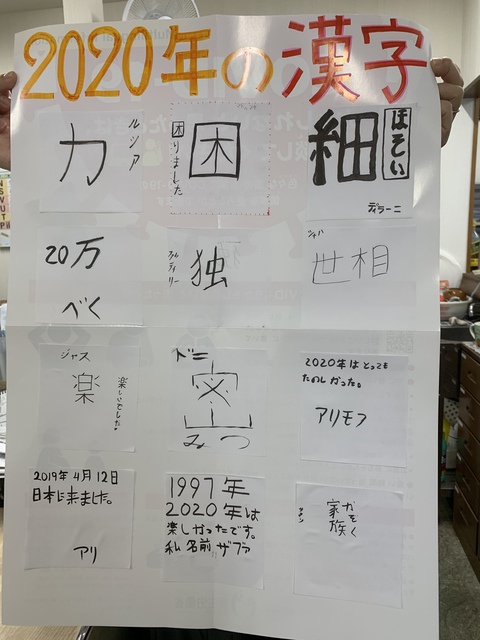 2020年の漢字
力
ルシア
困
困りました
細
ほそい
ディラーニ
20万
べく
独
世相
ジャス
楽
楽しいでした。
ドニ
密
みつ
2020年はとっても
たのしかった。
アリモフ
2019年4月12日
日本に来ました。
アリ
1997年
2020年は
楽しかったです。
私名前ザファ
家族
かぞく